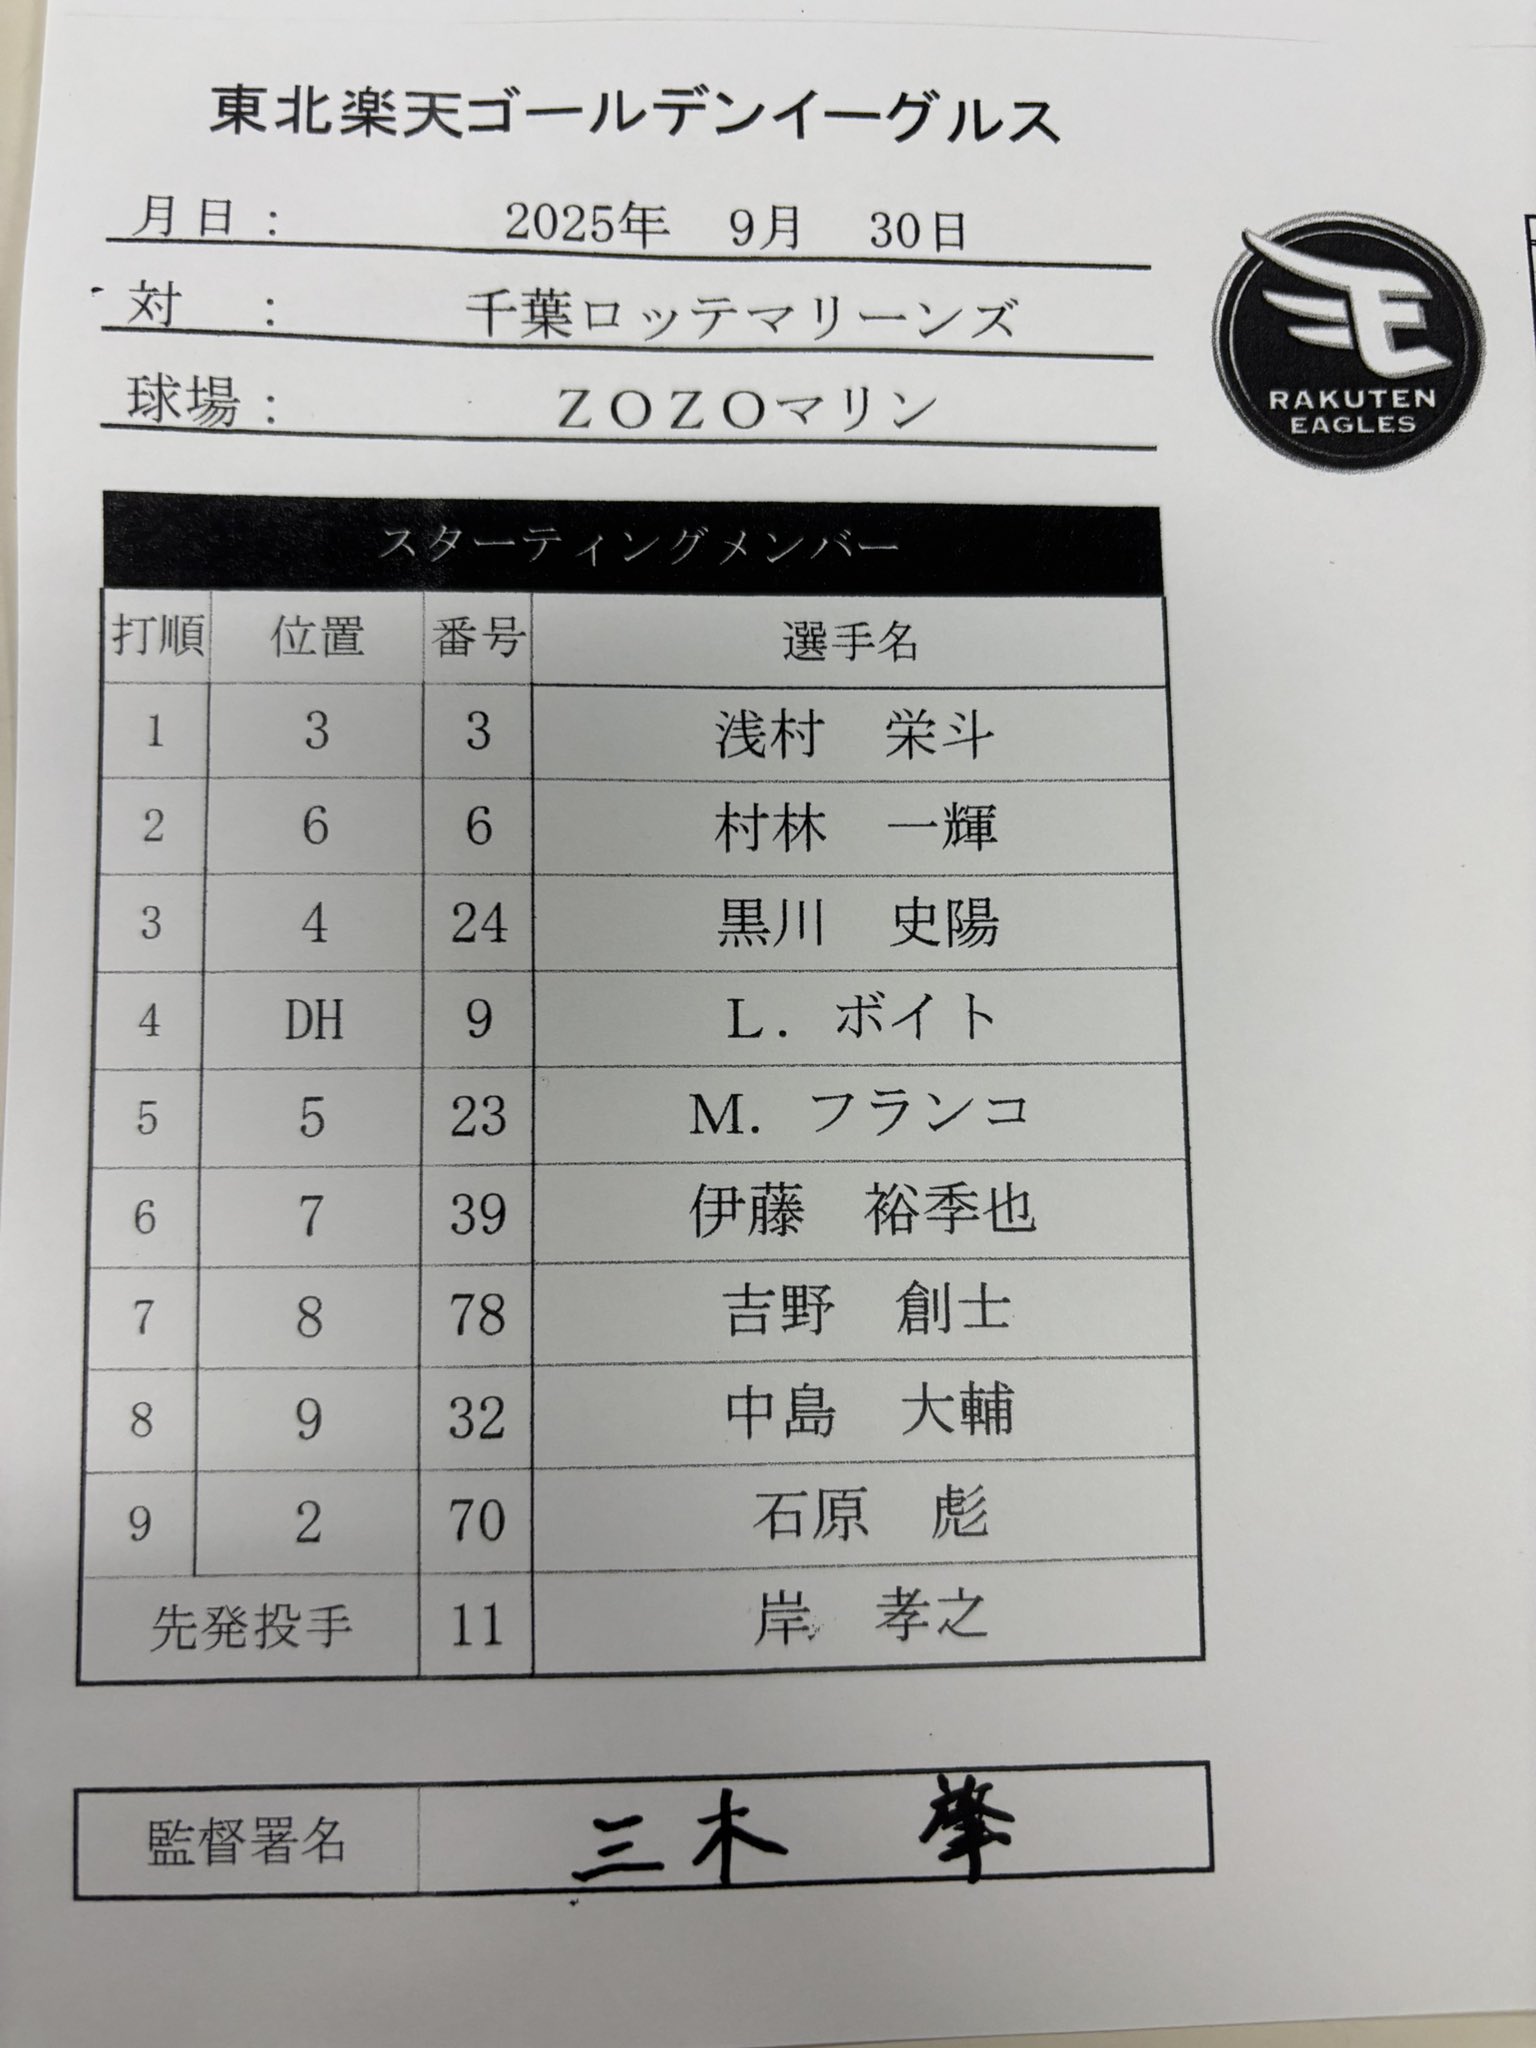 東北楽天ゴールデンイーグルス
月日： 2025年 9月 30日
対 ： 千葉ロッテマリーンズ
球場： ＺＯＺＯマリン
RAKUTEN
EAGLES
スターティングメンバー
打順 位置 番号 選手名
1 3 3 浅村 栄斗
2 6 6 村林 一輝
3 4 24 黒川 史陽
4 DH 9 Ｌ．ボイト
5 5 23 Ｍ．フランコ
6 7 39 伊藤 裕季也
7 8 78 吉野 創士
8 9 32 中島 大輔
9 2 70 石原 彪
先発投手 11 岸 孝之
監督署名 三木 肇